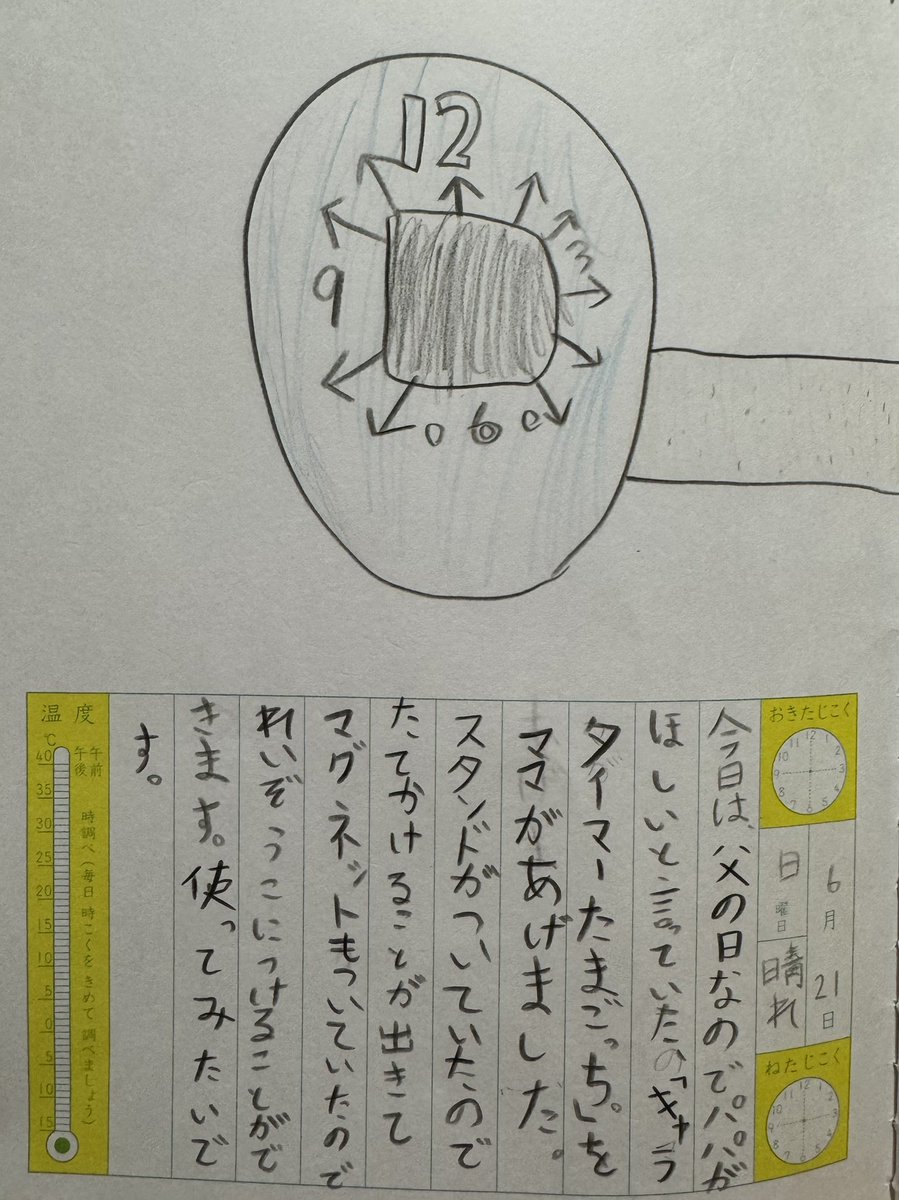 12
3
9
6
おきたじこく
6月21日
日曜日
晴れ
ねたじこく
今日は、父の日なのでパパが
ほしいと言っていたの「キャラ
タイマーたまごっち」を
ママがあげました。
スタンドがついていたので
たてかけることが出きて
マグネットもついていたので
れいぞうこにつけることがで
きます。使ってみたいで
す。
温度
℃
午前
午後
時調べ(毎日時こくをきめて調べましょう)
40
35
30
25
20
15
10
5
0
5
10
15